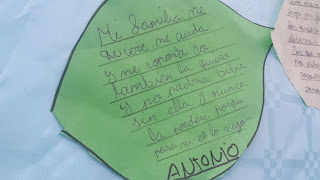 Mi familia me
quiere me cuida
y me soporta yo
tambien la quiero
y no podria bibir
sin ella y nunca
la perdere porque
para mi es lo mejor
ANTONIO